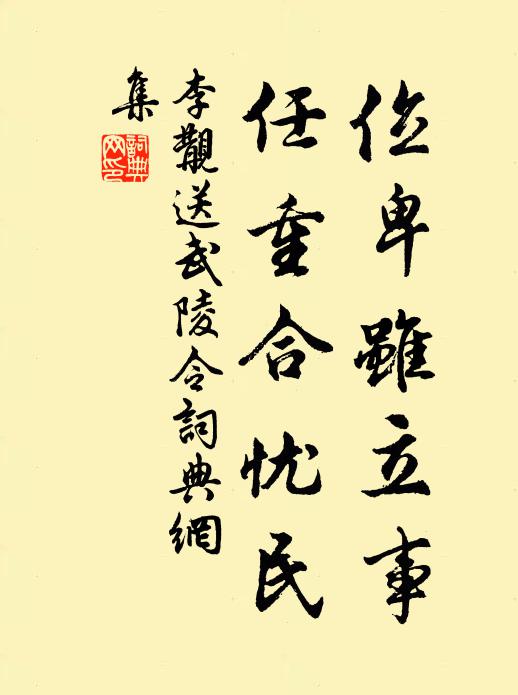 位卑雖立事
任重合忧民
李覯送武陵令詞典網
集
詞典
网印